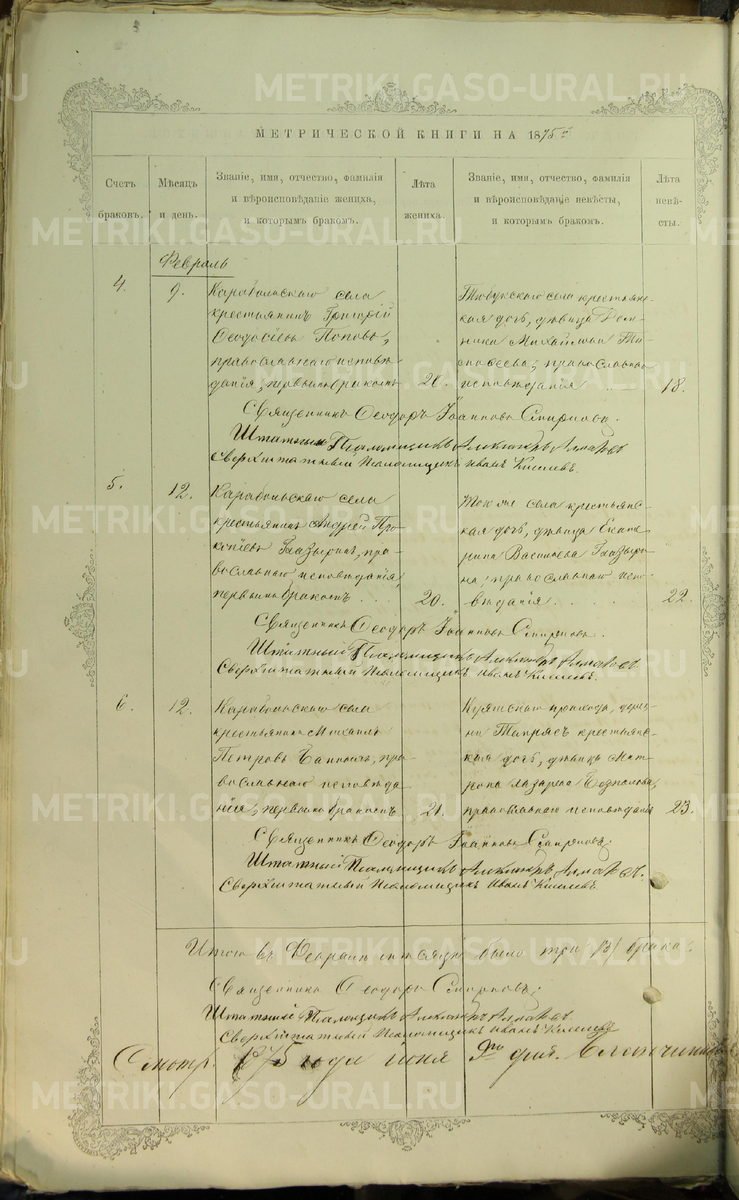 METRIKI.GASO-URAL.RU
МЕТРИЧЕСКОЙ КНИГИ НА 1875 г.
Счетъ браковъ.
Мѣсяцъ и день.
Званіе, имя, отчество, фамилія и вѣроисповѣданіе жениха, и которымъ бракомъ.
Лѣта жениха.
Званіе, имя, отчество, фамилія и вѣроисповѣданіе невѣсты, и которымъ бракомъ.
Лѣта невѣсты.
Февраль
4.
9.
Карабольскаго села
крестьянинъ Григорій
Ѳеодосіевъ Поповъ,
православнаго исповѣ-
данія, первымъ бракомъ
20.
Тюбукскаго села крестьянс-
кая дочь, дѣвица
Михайлова
православнаго
исповѣданія
18.
Священникъ Ѳеодоръ Іоанновъ Смирновъ.
Штатный Псаломщикъ Александръ
Сверхштатный Псаломщикъ Иванъ Киселевъ.
5.
12.
Карабольскаго села
крестьянинъ Андрей Про-
копіевъ Глазыринъ, пра-
вославнаго исповѣданія,
первымъ бракомъ
20.
Того же села крестьянс-
кая дочь, дѣвица Екате-
рина Васильева Глазыри-
на, православнаго испо-
вѣданія
22.
Священникъ Ѳеодоръ Іоанновъ Смирновъ.
Штатный Псаломщикъ Александръ
Сверхштатный Псаломщикъ Иванъ Киселевъ.
6.
12.
Карабольскаго села
крестьянинъ Михаилъ
Петровъ пра-
вославнаго исповѣда-
нія, первымъ бракомъ
21.
прихода, дерев-
ни крестьянс-
кая дочь, дѣвица Мат-
рона Лазарева
православнаго исповѣданія
23.
Священникъ Ѳеодоръ Іоанновъ Смирновъ.
Штатный Псаломщикъ Александръ
Сверхштатный Псаломщикъ Иванъ Киселевъ.
Итого въ Февралѣ мѣсяцѣ было три /3/ брака.
Священникъ Ѳеодоръ Смирновъ.
Штатный Псаломщикъ Александръ
Сверхштатный Псаломщикъ Иванъ Киселевъ
Смотр. 1875 года Іюня 9го дня.